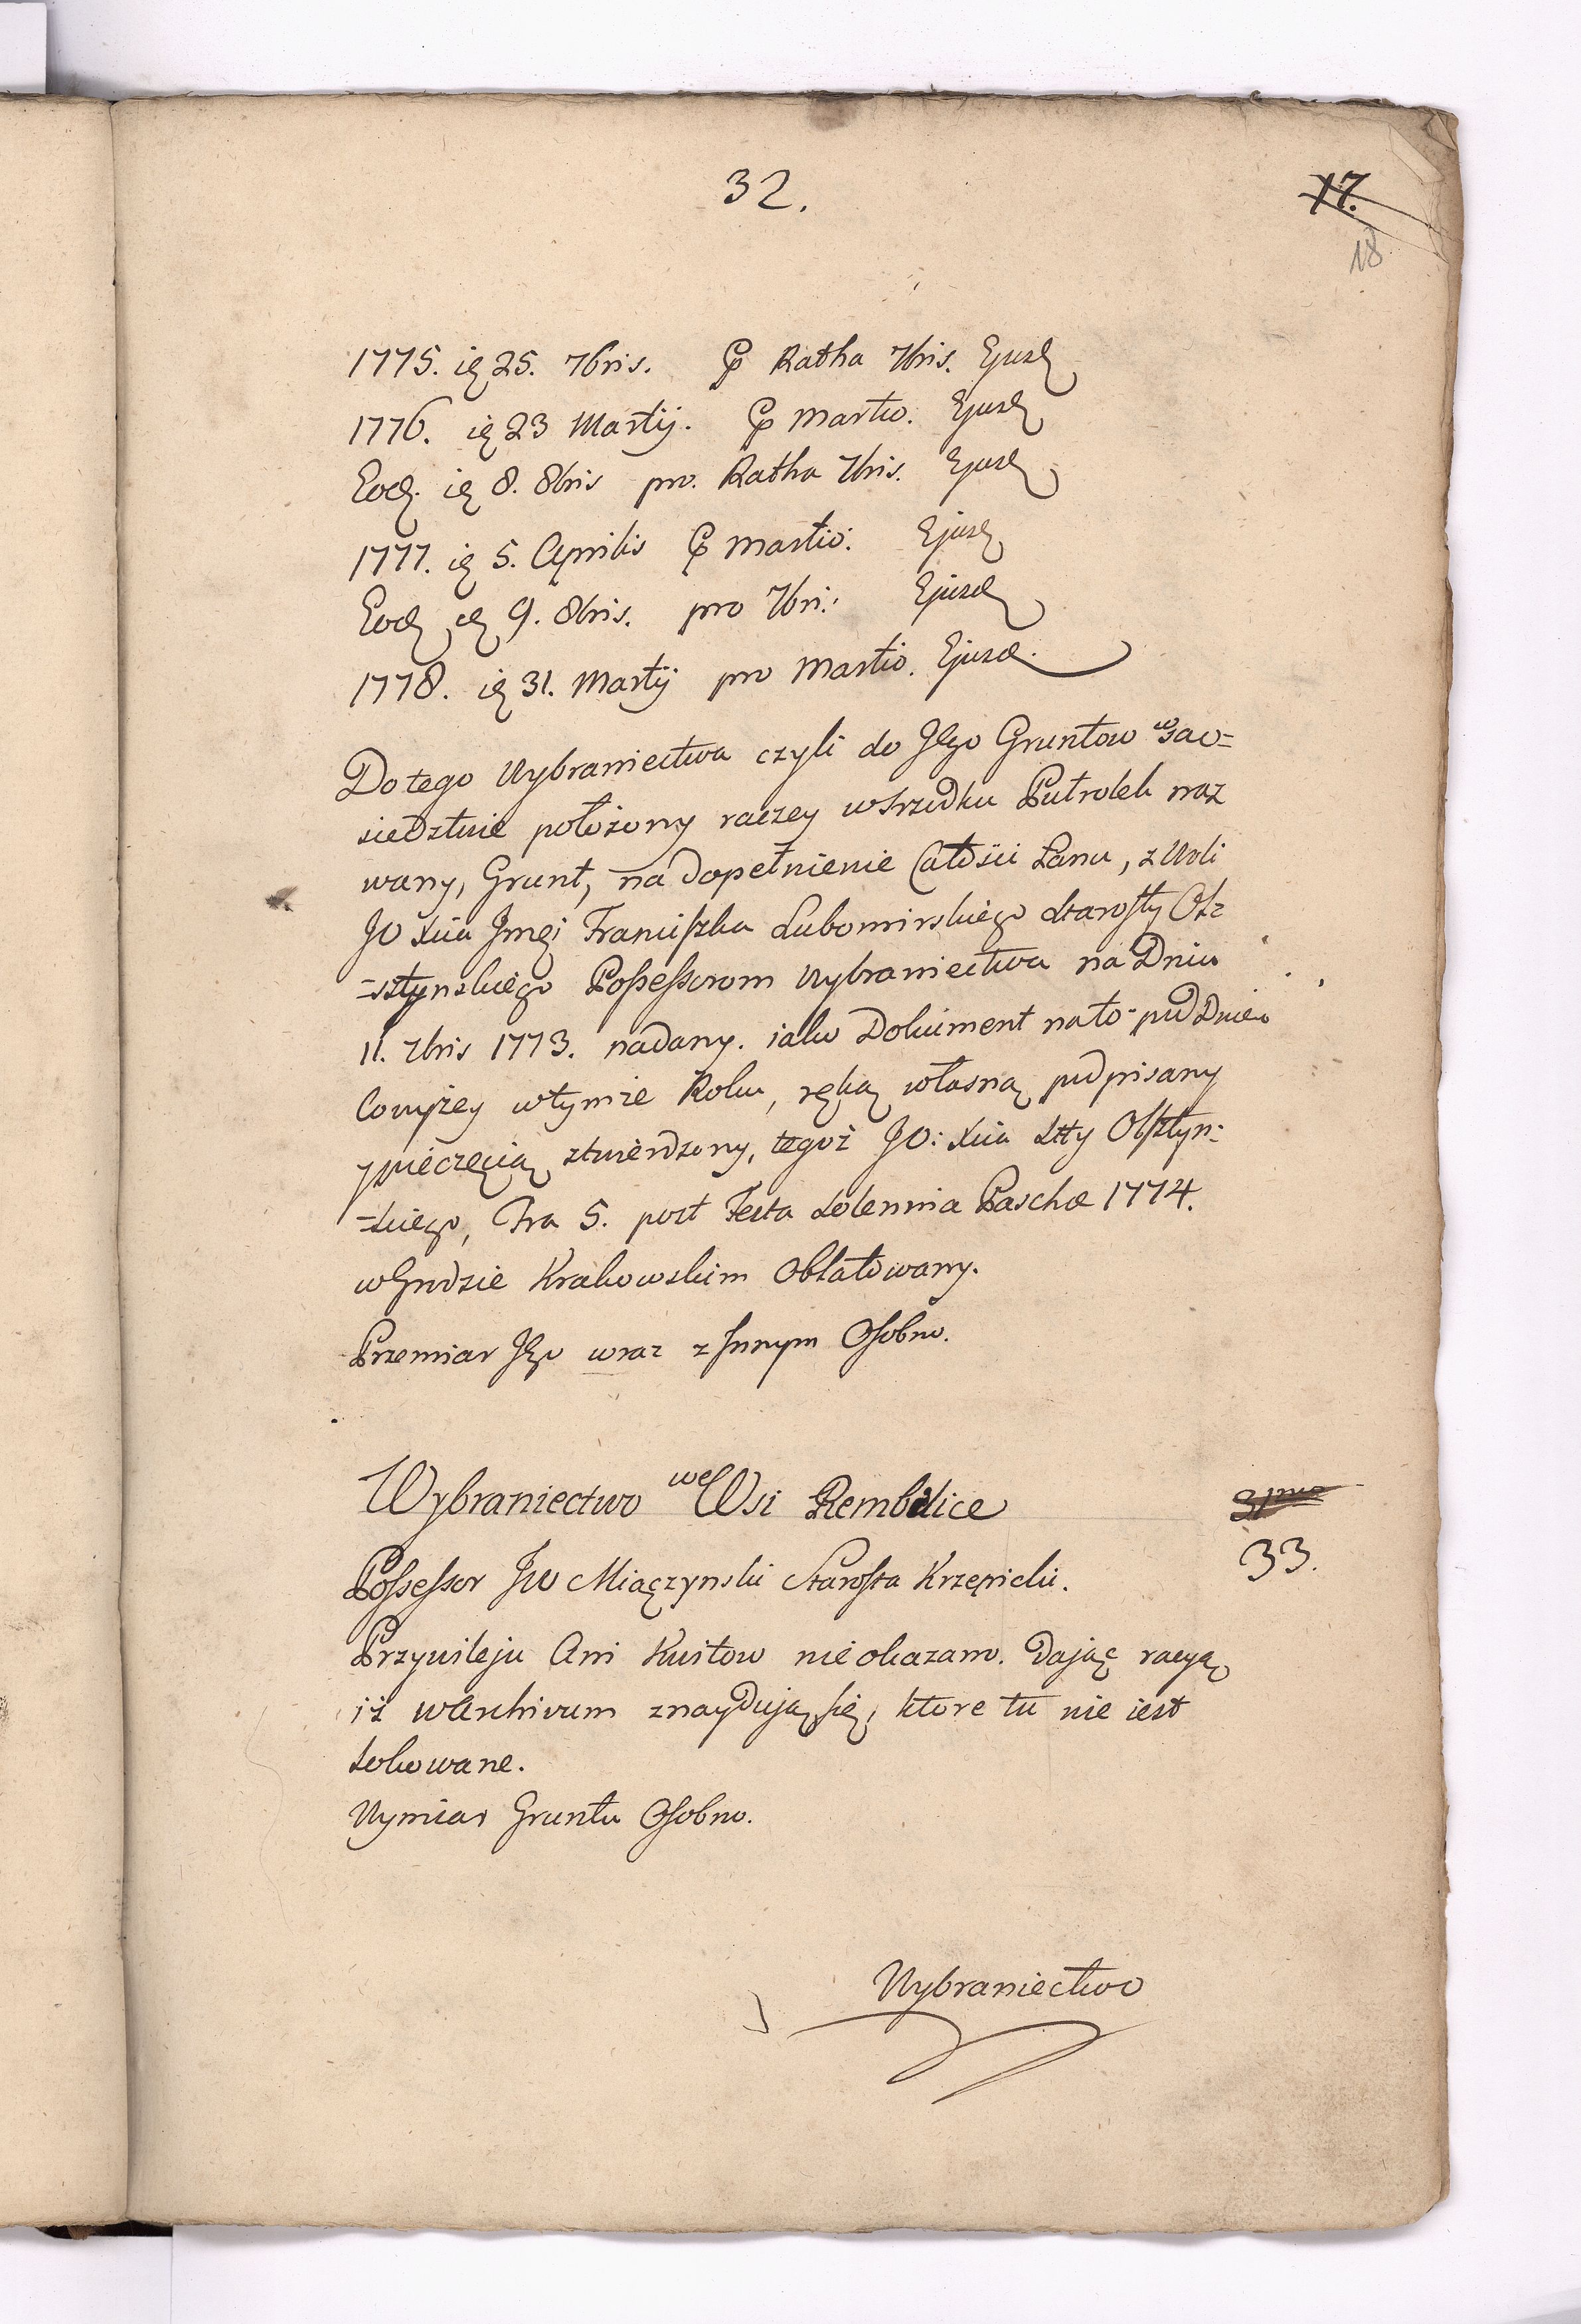 32.
17.
18
1775. ię 25. 7bris. Pp Ratha 7bris. Ejusd
1776. ię 23 Martij. Pp Martio. Ejusd
Eod. ię 8. 8bris pro. Ratha 7bris. Ejusd
1777. ię 5. Aprilis Pp Martio: Ejusd
Eod ię 9. 8bris. pro 7bri: Ejusd
1778. ię 31. Martij pro Martio. Ejusd.
Do tego Wybraniectwa czyli do Jego Gruntow w sao=
siedztwie położony raczey wsrzodku Putrolek naz
wany, Grunt, na dopełnienie Całości Łanu, z Woli
JO Xcia Jmci Franciszka Lubomirskiego Starosty Ols
=sztynskiego Possessorom Wybraniectwa na Dniu
11. 7bris 1773. nadany. iako Dokument na to pod Dniem
Cowyżey wtymże Roku, ręką własną podpisany
ypieczęcią ztwierdzony, tegoż JO: Xcia Stty Olsztyn:
=skiego, Fra 5. post Festa Solennia Paschæ 1774.
wGrodzie Krakowskim Oblatowany.
Przemiar Jego wraz z Innym Osobno.
Wybraniectwo we Wsi Rembilice
33.
Possessor JW Miączynski Starosta Krzepicki.
Przywileju Ani Kwitow nie okazano. Dając racyą
iż wArchivum znaydują się, ktore tu nie iest
lokowane.
Wymiar Gruntu Osobno.
Wybraniectwo